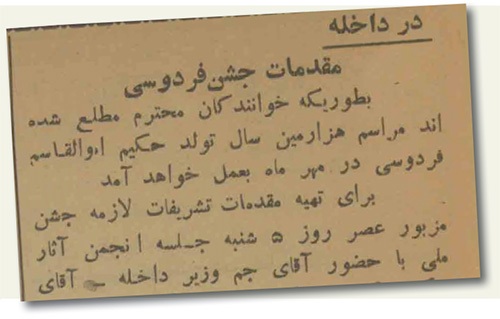 در داخله
مقدمات جشن فردوسی
بطوریکه خوانندگان محترم مطلع شده
اند مراسم هزارمین سال تولد حکیم ابوالقاسم
فردوسی در مهر ماه بعمل خواهد آمد
برای تهیه مقدمات تشریفات لازمه جشن
مزبور عصر روز ۵ شنبه جلسه انجمن آثار
ملی با حضور آقای جم وزیر داخله ـ آقای